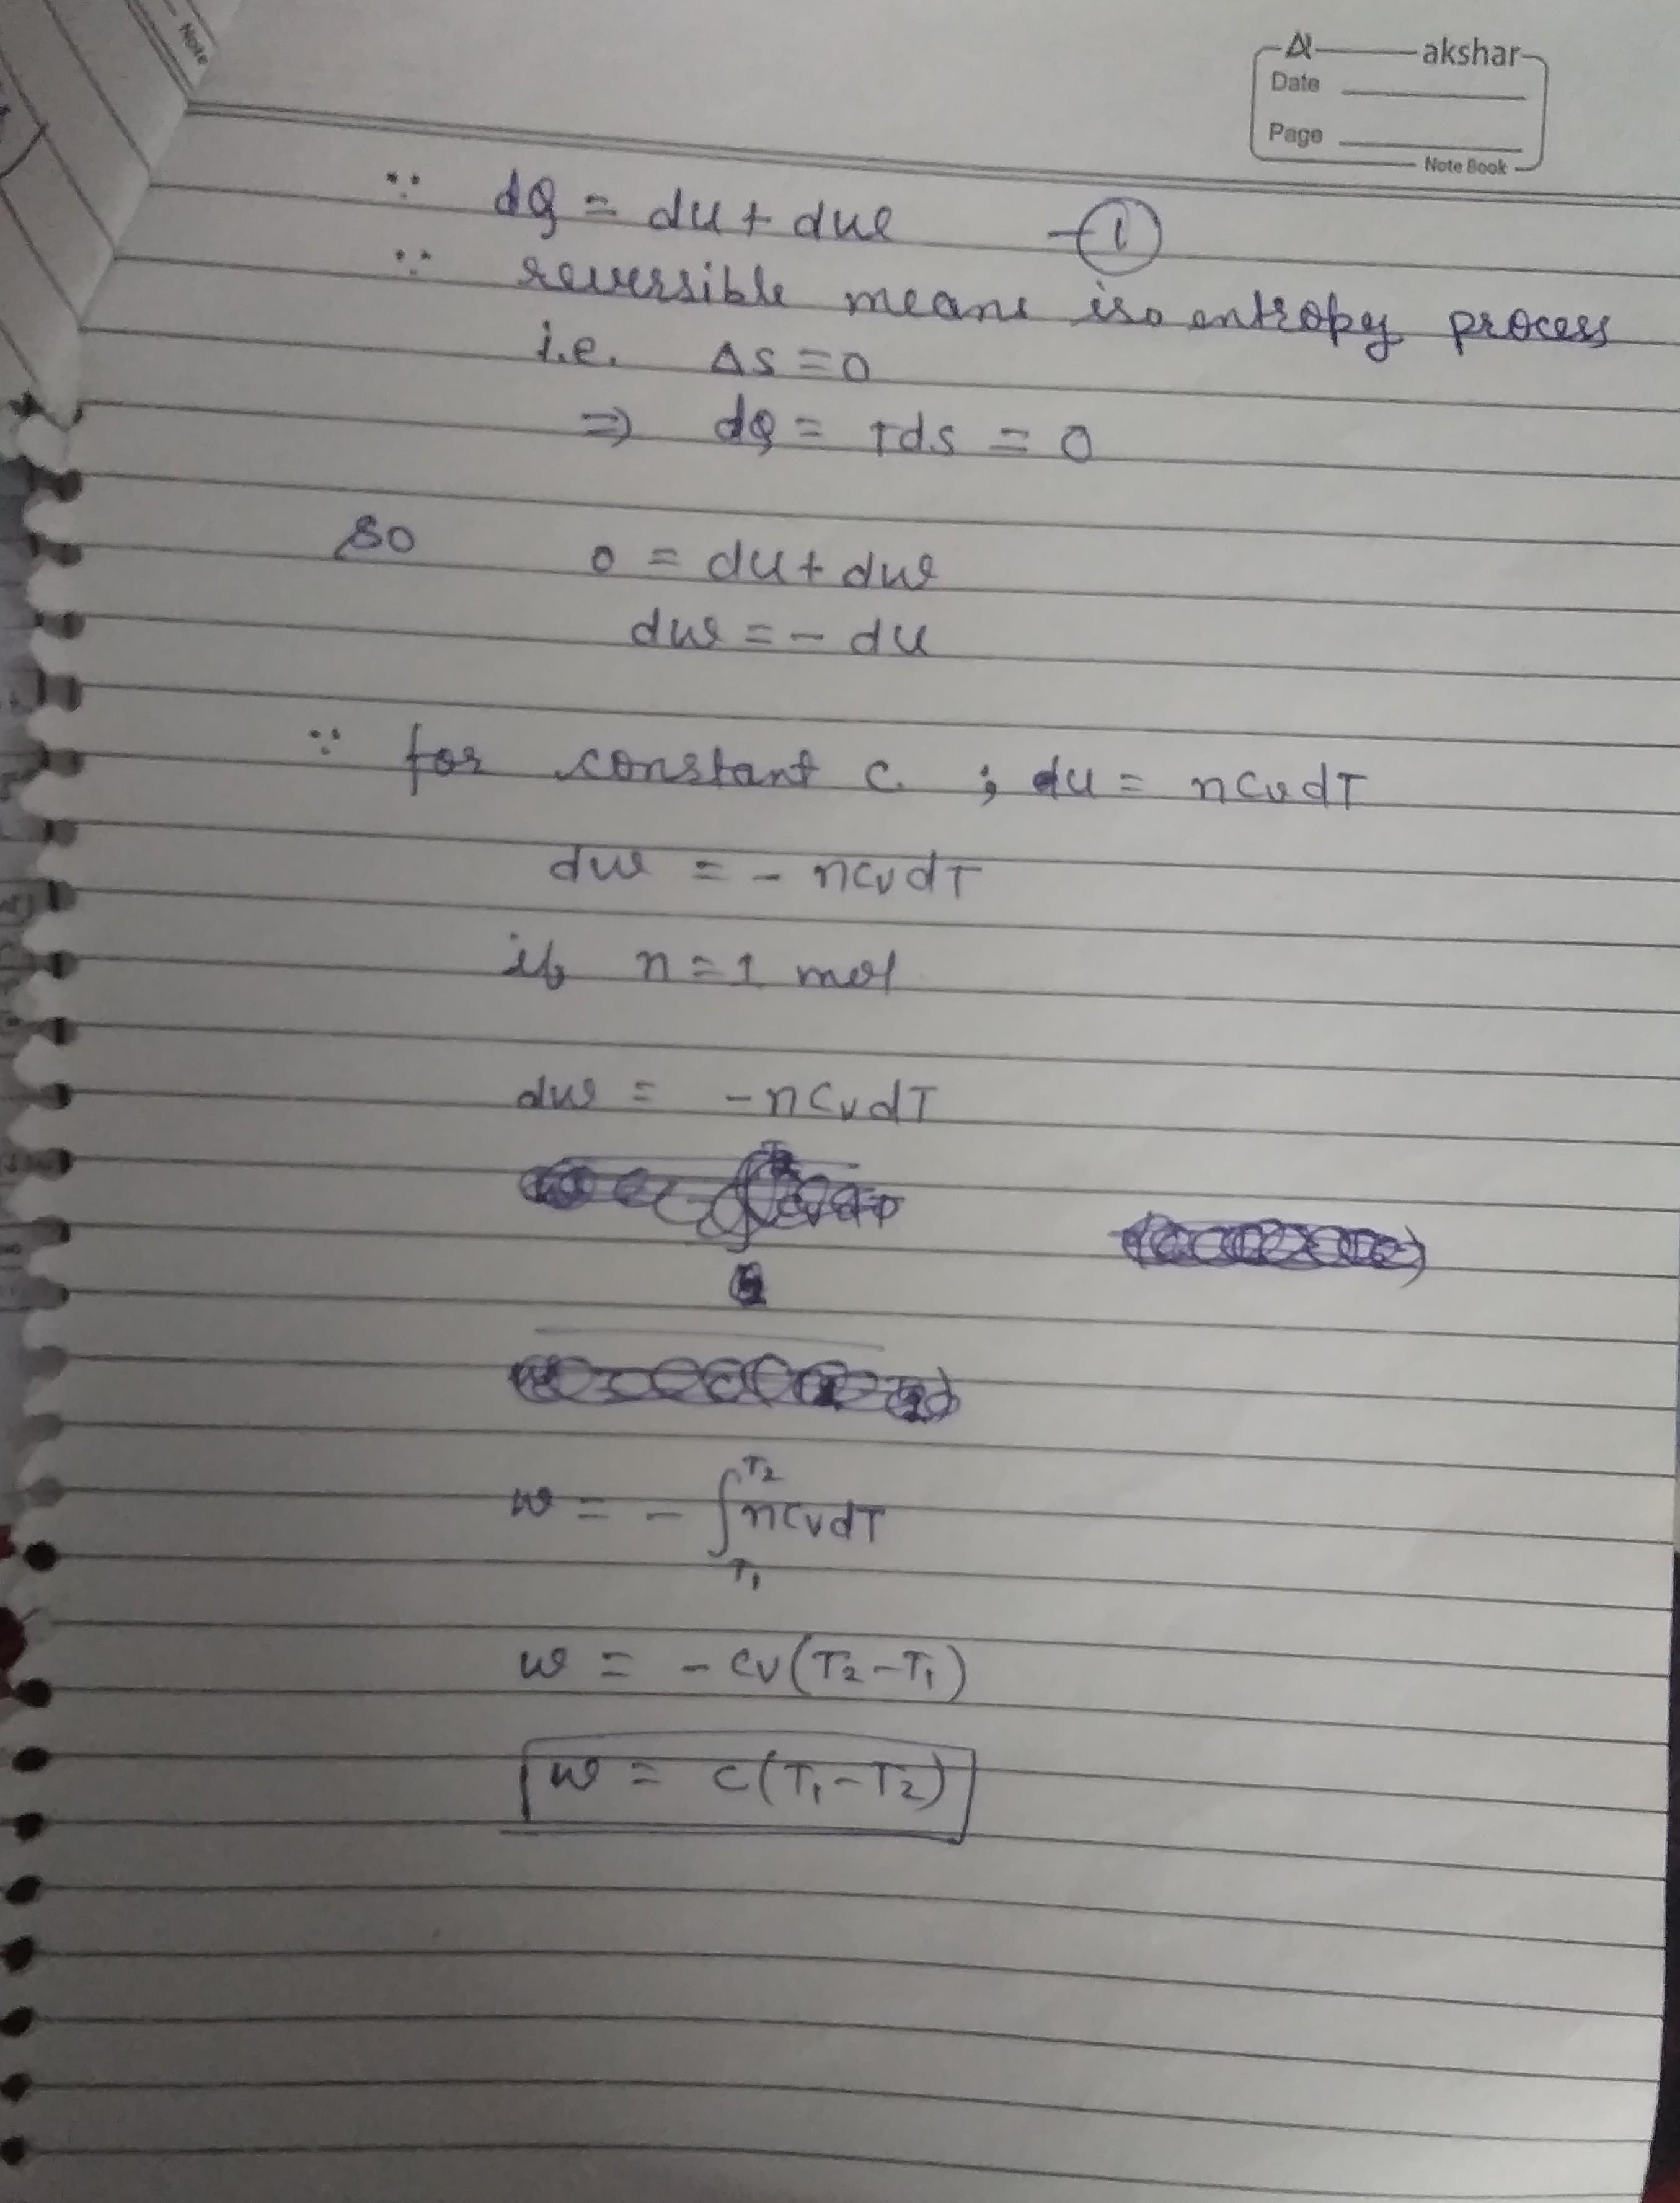 Note
akshar
Date
Page
Note Book
∵ dQ = du + dw — ①
∵ reversible means iso entropy process
i.e. ΔS = 0
⇒ dQ = Tds = 0
so 0 = du + dw
dw = - du
∵ for constant c. ; du = ncvdT
dw = - ncvdT
if n = 1 mol
dw = - ncvdT
w = - ∫T1T2 ncvdT
w = - cv(T2 - T1)
w = c(T1 - T2)